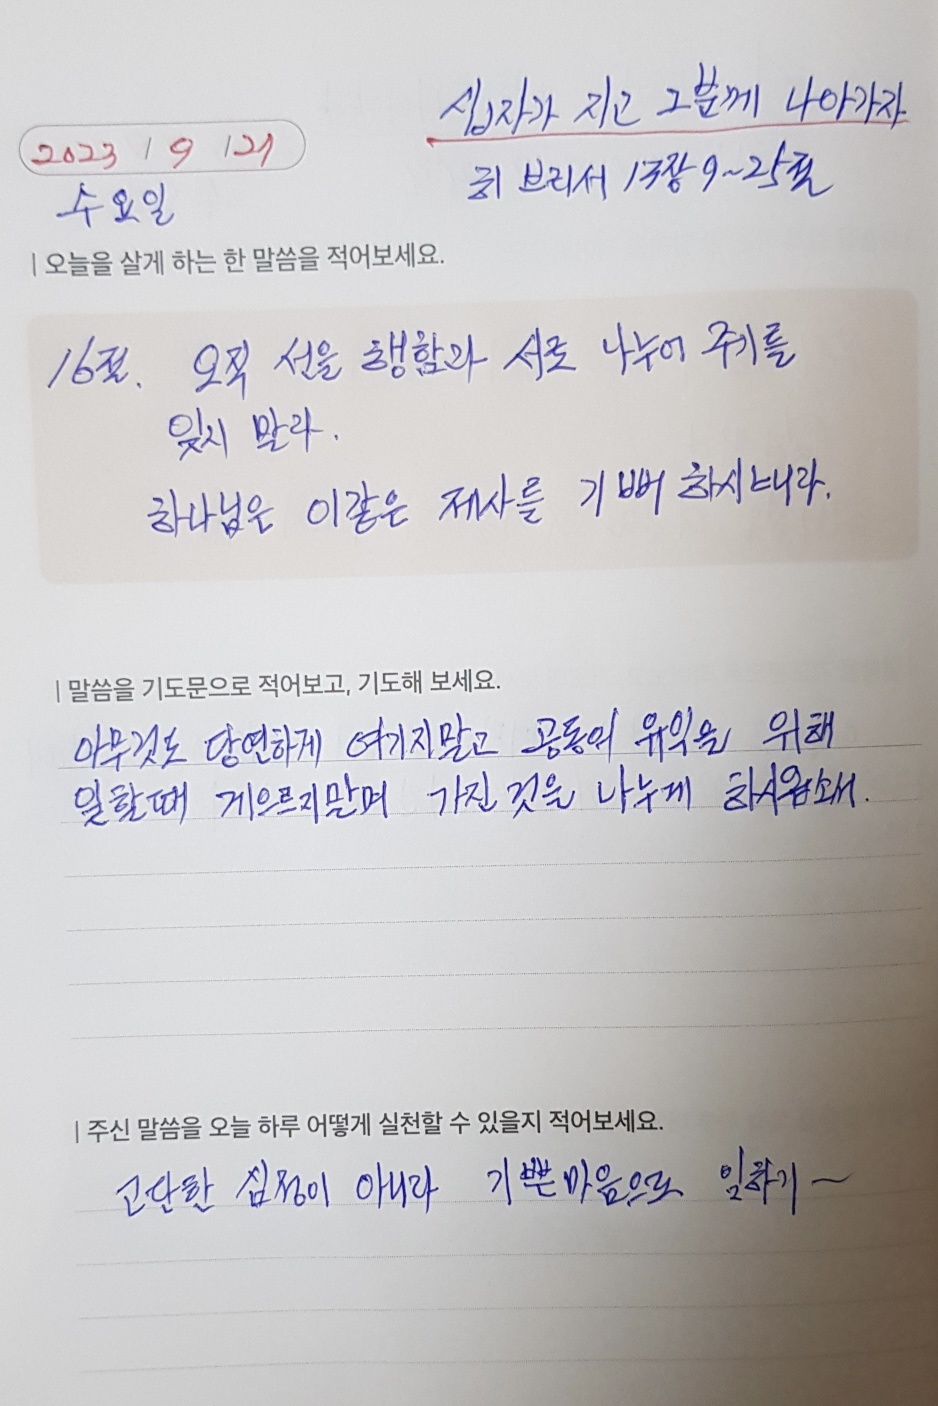 십자가 지고 그분께 나아가자
2023 / 9 / 27
히브리서 13장 9~25절
수요일
| 오늘을 살게 하는 한 말씀을 적어보세요.
16절. 오직 선을 행함과 서로 나누어 주기를
잊지 말라.
하나님은 이같은 제사를 기뻐 하시느니라.
| 말씀을 기도문으로 적어보고, 기도해 보세요.
아무것도 당연하게 여기지말고 공동의 유익을 위해
일할때 게으르지말며 가진 것을 나누게 하시옵소서.
| 주신 말씀을 오늘 하루 어떻게 실천할 수 있을지 적어보세요.
고단한 심정이 아니라 기쁜마음으로 일하기~